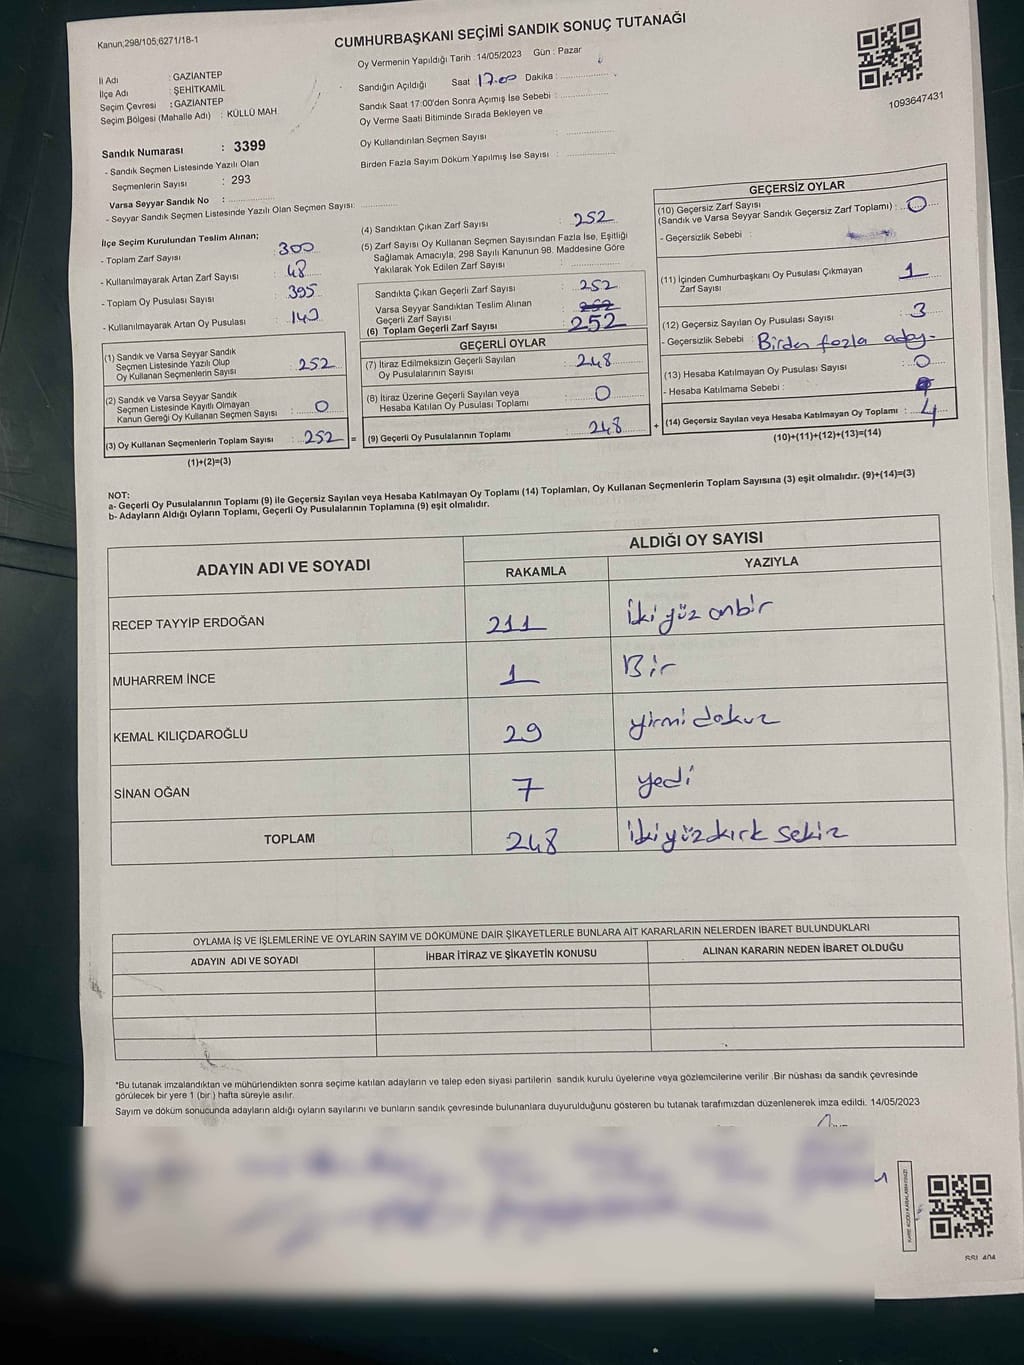 Kanun;298/105;6271/18-1
CUMHURBAŞKANI SEÇİMİ SANDIK SONUÇ TUTANAĞI
Oy Vermenin Yapıldığı Tarih : 14/05/2023 Gün : Pazar
1093647431
İli Adı : GAZİANTEP
İlçe Adı : ŞEHİTKAMİL
Seçim Çevresi : GAZİANTEP
Seçim Bölgesi (Mahalle Adı) : KÜLLÜ MAH
Sandık Numarası : 3399
- Sandık Seçmen Listesinde Yazılı Olan
Seçmenlerin Sayısı : 293
Varsa Seyyar Sandık No :
- Seyyar Sandık Seçmen Listesinde Yazılı Olan Seçmen Sayısı:
Sandığın Açıldığı Saat 17.00 Dakika :
Sandık Saat 17:00'den Sonra Açımış İse Sebebi :
Oy Verme Saati Bitiminde Sırada Bekleyen ve
Oy Kullandırılan Seçmen Sayısı :
Birden Fazla Sayım Döküm Yapılmış İse Sayısı :
İlçe Seçim Kurulundan Teslim Alınan;
- Toplam Zarf Sayısı : 300
- Kullanılmayarak Artan Zarf Sayısı : 48
- Toplam Oy Pusulası Sayısı : 395
- Kullanılmayarak Artan Oy Pusulası : 143
(1) Sandık ve Varsa Seyyar Sandık
Seçmen Listesinde Yazılı Olup
Oy Kullanan Seçmenlerin Sayısı : 252
(2) Sandık ve Varsa Seyyar Sandık
Seçmen Listesinde Kayıtlı Olmayan
Kanun Gereği Oy Kullanan Seçmen Sayısı : 0
(3) Oy Kullanan Seçmenlerin Toplam Sayısı : 252 =
(1)+(2)=(3)
(4) Sandıktan Çıkan Zarf Sayısı : 252
(5) Zarf Sayısı Oy Kullanan Seçmen Sayısından Fazla İse, Eşitliği
Sağlamak Amacıyla; 298 Sayılı Kanunun 98. Maddesine Göre
Yakılarak Yok Edilen Zarf Sayısı :
Sandıkta Çıkan Geçerli Zarf Sayısı : 252
Varsa Seyyar Sandıktan Teslim Alınan
Geçerli Zarf Sayısı : 252
(6) Toplam Geçerli Zarf Sayısı : 252
GEÇERLİ OYLAR
(7) İtiraz Edilmeksizin Geçerli Sayılan
Oy Pusulalarının Sayısı : 248
(8) İtiraz Üzerine Geçerli Sayılan veya
Hesaba Katılan Oy Pusulası Toplamı : 0
(9) Geçerli Oy Pusulalarının Toplamı : 248 +
GEÇERSİZ OYLAR
(10) Geçersiz Zarf Sayısı
(Sandık ve Varsa Seyyar Sandık Geçersiz Zarf Toplamı) : 0
- Geçersizlik Sebebi :
(11) İçinden Cumhurbaşkanı Oy Pusulası Çıkmayan
Zarf Sayısı : 1
(12) Geçersiz Sayılan Oy Pusulası Sayısı : 3
- Geçersizlik Sebebi : Birden fazla aday.
(13) Hesaba Katılmayan Oy Pusulası Sayısı : 0
- Hesaba Katılmama Sebebi :
(14) Geçersiz Sayılan veya Hesaba Katılmayan Oy Toplamı : 4
(10)+(11)+(12)+(13)=(14)
NOT:
a- Geçerli Oy Pusulalarının Toplamı (9) ile Geçersiz Sayılan veya Hesaba Katılmayan Oy Toplamı (14) Toplamları, Oy Kullanan Seçmenlerin Toplam Sayısına (3) eşit olmalıdır. (9)+(14)=(3)
b- Adayların Aldığı Oyların Toplamı, Geçerli Oy Pusulalarının Toplamına (9) eşit olmalıdır.
ADAYIN ADI VE SOYADI
ALDIĞI OY SAYISI
RAKAMLA YAZIYLA
RECEP TAYYİP ERDOĞAN 211 İki yüz onbir
MUHARREM İNCE 1 Bir
KEMAL KILIÇDAROĞLU 29 yirmi dokuz
SİNAN OĞAN 7 yedi
TOPLAM 248 ikiyüzkırk sekiz
OYLAMA İŞ VE İŞLEMLERİNE VE OYLARIN SAYIM VE DÖKÜMÜNE DAİR ŞİKAYETLERLE BUNLARA AİT KARARLARIN NELERDEN İBARET BULUNDUKLARI
ADAYIN ADI VE SOYADI İHBAR İTİRAZ VE ŞİKAYETİN KONUSU ALINAN KARARIN NEDEN İBARET OLDUĞU
*Bu tutanak imzalandıktan ve mühürlendikten sonra seçime katılan adayların ve talep eden siyasi partilerin sandık kurulu üyelerine veya gözlemcilerine verilir .Bir nüshası da sandık çevresinde
görülecek bir yere 1 (bir ) hafta süreyle asılır.
Sayım ve döküm sonucunda adayların aldığı oyların sayılarını ve bunların sandık çevresinde bulunanlara duyurulduğunu gösteren bu tutanak tarafımızdan düzenlenerek imza edildi. 14/05/2023